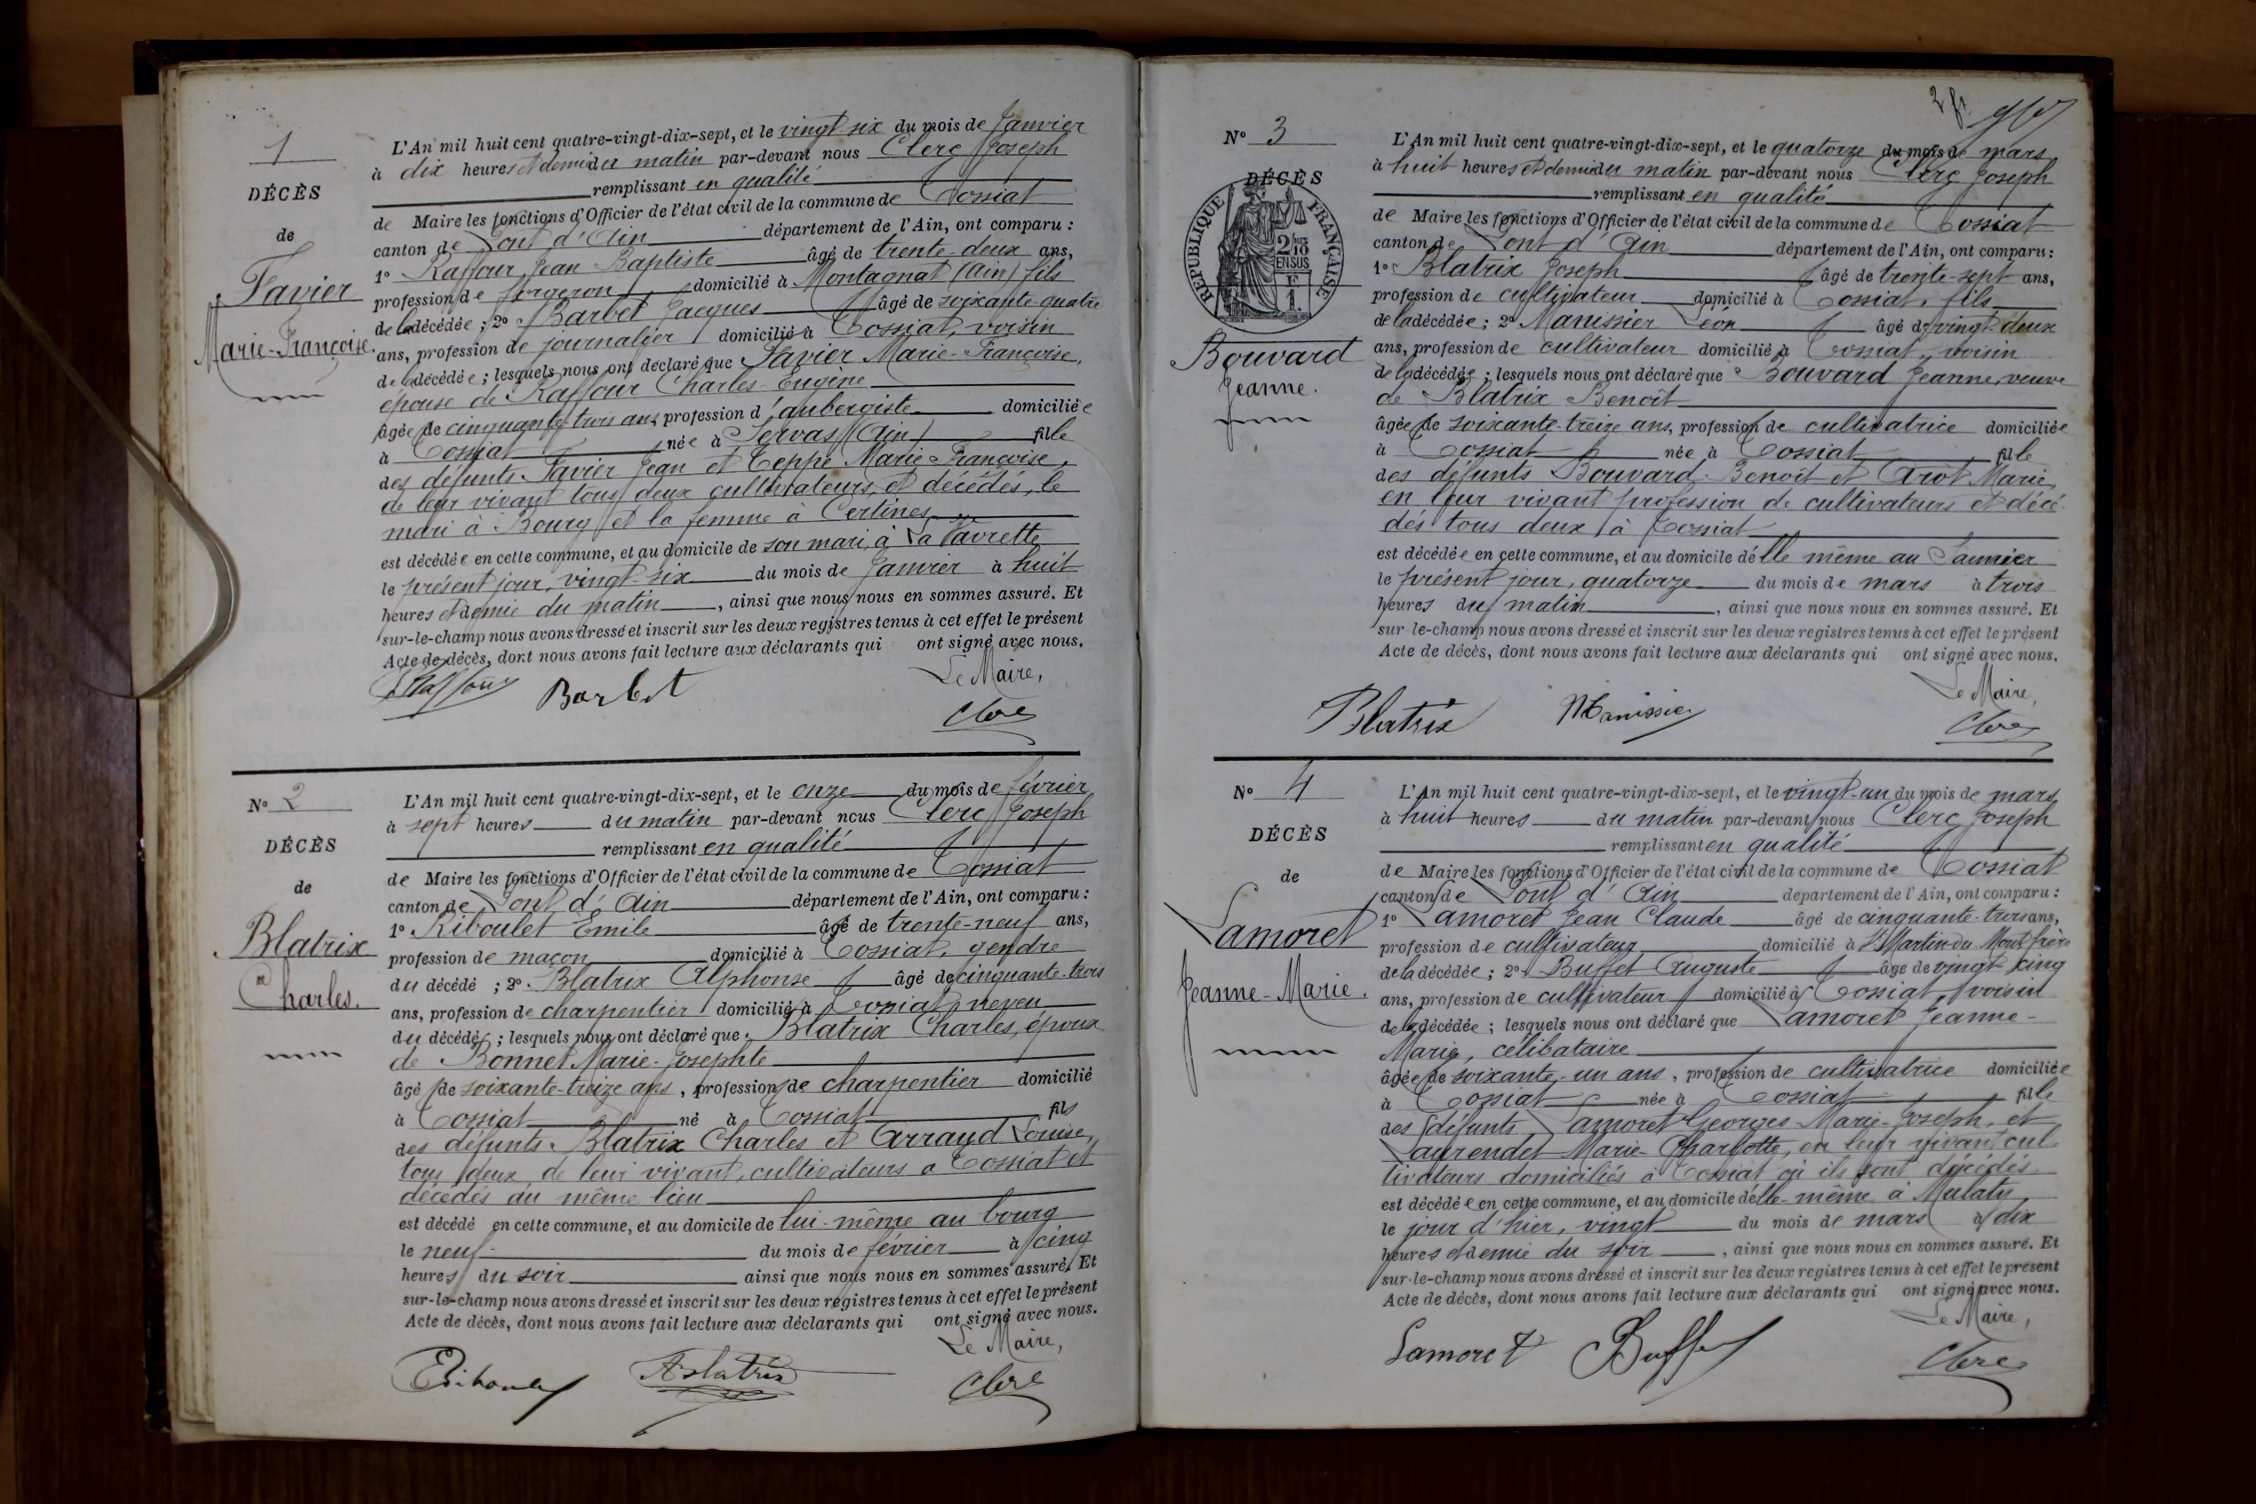 1
DÉCÈS
de
Favier
Marie-Françoise.
L'An mil huit cent quatre-vingt-dix-sept, et le vingt six du mois de Janvier
à dix heures et demie du matin par-devant nous Clerc Joseph
remplissant en qualité
de Maire les fonctions d'Officier de l'état civil de la commune de Tossiat
canton de Pont d'Ain département de l'Ain, ont comparu :
1º Raffour Jean Baptiste âgé de trente-deux ans,
profession de forgeron domicilié à Montagnat (Ain) fils
de la décédée ; 2º Barbet Jacques âgé de soixante quatre
ans, profession de journalier domicilié à Tossiat, voisin
de la décédée ; lesquels nous ont déclaré que Favier Marie-Françoise,
épouse de Raffour Charles-Eugène
âgée de cinquante-trois ans, profession d'aubergiste domiciliée
à Tossiat née à Servas (Ain) fille
des défunts Favier Jean et Teppe Marie-Françoise,
de leur vivant tous deux cultivateurs, et décédés, le
mari à Bourg et la femme à Certines
est décédée en cette commune, et au domicile de son mari, à La Vavrette
le présent jour, vingt-six du mois de Janvier à huit
heures et demie du matin, ainsi que nous nous en sommes assuré. Et
sur-le-champ nous avons dressé et inscrit sur les deux registres tenus à cet effet le présent
Acte de décès, dont nous avons fait lecture aux déclarants qui ont signé avec nous.
Le Maire,
Raffour Barbet Clerc
Nº 2
DÉCÈS
de
Blatrix
Charles.
L'An mil huit cent quatre-vingt-dix-sept, et le onze du mois de février
à sept heures du matin par-devant nous Clerc Joseph
remplissant en qualité
de Maire les fonctions d'Officier de l'état civil de la commune de Tossiat
canton de Pont d'Ain département de l'Ain, ont comparu :
1º Riboulet Emile âgé de trente-neuf ans,
profession de maçon domicilié à Tossiat, gendre
du décédé ; 2º Blatrix Alphonse âgé de cinquante-trois
ans, profession de charpentier domicilié à Tossiat neveu
du décédé ; lesquels nous ont déclaré que Blatrix Charles, époux
de Bonnet Marie-Josephte
âgé de soixante-treize ans, profession de charpentier domicilié
à Tossiat né à Tossiat fils
des défunts Blatrix Charles et Arraud Louise,
tous deux de leur vivant, cultivateurs à Tossiat et
décédés au même lieu
est décédé en cette commune, et au domicile de lui-même au bourg
le neuf du mois de février à cinq
heures du soir ainsi que nous nous en sommes assuré. Et
sur-le-champ nous avons dressé et inscrit sur les deux registres tenus à cet effet le présent
Acte de décès, dont nous avons fait lecture aux déclarants qui ont signé avec nous.
Le Maire,
ERiboulet ABlatrix Clerc
2 f.
Nº 3
DÉCÈS
RÉPUBLIQUE FRANÇAISE
2/10 EN SUS
F 1
Bouvard
Jeanne.
L'An mil huit cent quatre-vingt-dix-sept, et le quatorze du mois de mars
à huit heures et demie du matin par-devant nous Clerc Joseph
remplissant en qualité
de Maire les fonctions d'Officier de l'état civil de la commune de Tossiat
canton de Pont d'Ain département de l'Ain, ont comparu :
1º Blatrix Joseph âgé de trente-sept ans,
profession de cultivateur domicilié à Tossiat, fils
de la décédée ; 2º Manissier Léon âgé de vingt-deux
ans, profession de cultivateur domicilié à Tossiat, voisin
de la décédée ; lesquels nous ont déclaré que Bouvard Jeanne, veuve
de Blatrix Benoît
âgée de soixante-treize ans, profession de cultivatrice domiciliée
à Tossiat née à Tossiat fille
des défunts Bouvard Benoît et Arot Marie,
en leur vivant profession de cultivateurs et décé-
dés tous deux à Tossiat
est décédée en cette commune, et au domicile d'elle même au Saumier
le présent jour, quatorze du mois de mars à trois
heures du matin, ainsi que nous nous en sommes assuré. Et
sur-le-champ nous avons dressé et inscrit sur les deux registres tenus à cet effet le présent
Acte de décès, dont nous avons fait lecture aux déclarants qui ont signé avec nous.
Le Maire,
Blatrix Manissier Clerc
Nº 4
DÉCÈS
de
Lamoret
Jeanne-Marie.
L'An mil huit cent quatre-vingt-dix-sept, et le vingt-un du mois de mars
à huit heures du matin par-devant nous Clerc Joseph
remplissant en qualité
de Maire les fonctions d'Officier de l'état civil de la commune de Tossiat
canton de Pont d'Ain département de l'Ain, ont comparu :
1º Lamoret Jean Claude âgé de cinquante-trois ans,
profession de cultivateur domicilié à St Martin-du-Mont frère
de la décédée ; 2º Buffet Auguste âgé de vingt-cinq
ans, profession de cultivateur domicilié à Tossiat, voisin
de la décédée ; lesquels nous ont déclaré que Lamoret Jeanne-
Marie, célibataire
âgée de soixante-un ans, profession de cultivatrice domiciliée
à Tossiat née à Tossiat fille
des défunts Lamoret Georges-Marie-Joseph, et
Laurendet Marie-Charlotte, en leur vivant cul-
tivateurs domiciliés à Tossiat où ils sont décédés
est décédée en cette commune, et au domicile d'elle-même à Mulaty
le jour d'hier, vingt du mois de mars à dix
heures et demie du soir, ainsi que nous nous en sommes assuré. Et
sur-le-champ nous avons dressé et inscrit sur les deux registres tenus à cet effet le présent
Acte de décès, dont nous avons fait lecture aux déclarants qui ont signé avec nous.
Le Maire,
Lamoret Buffet Clerc